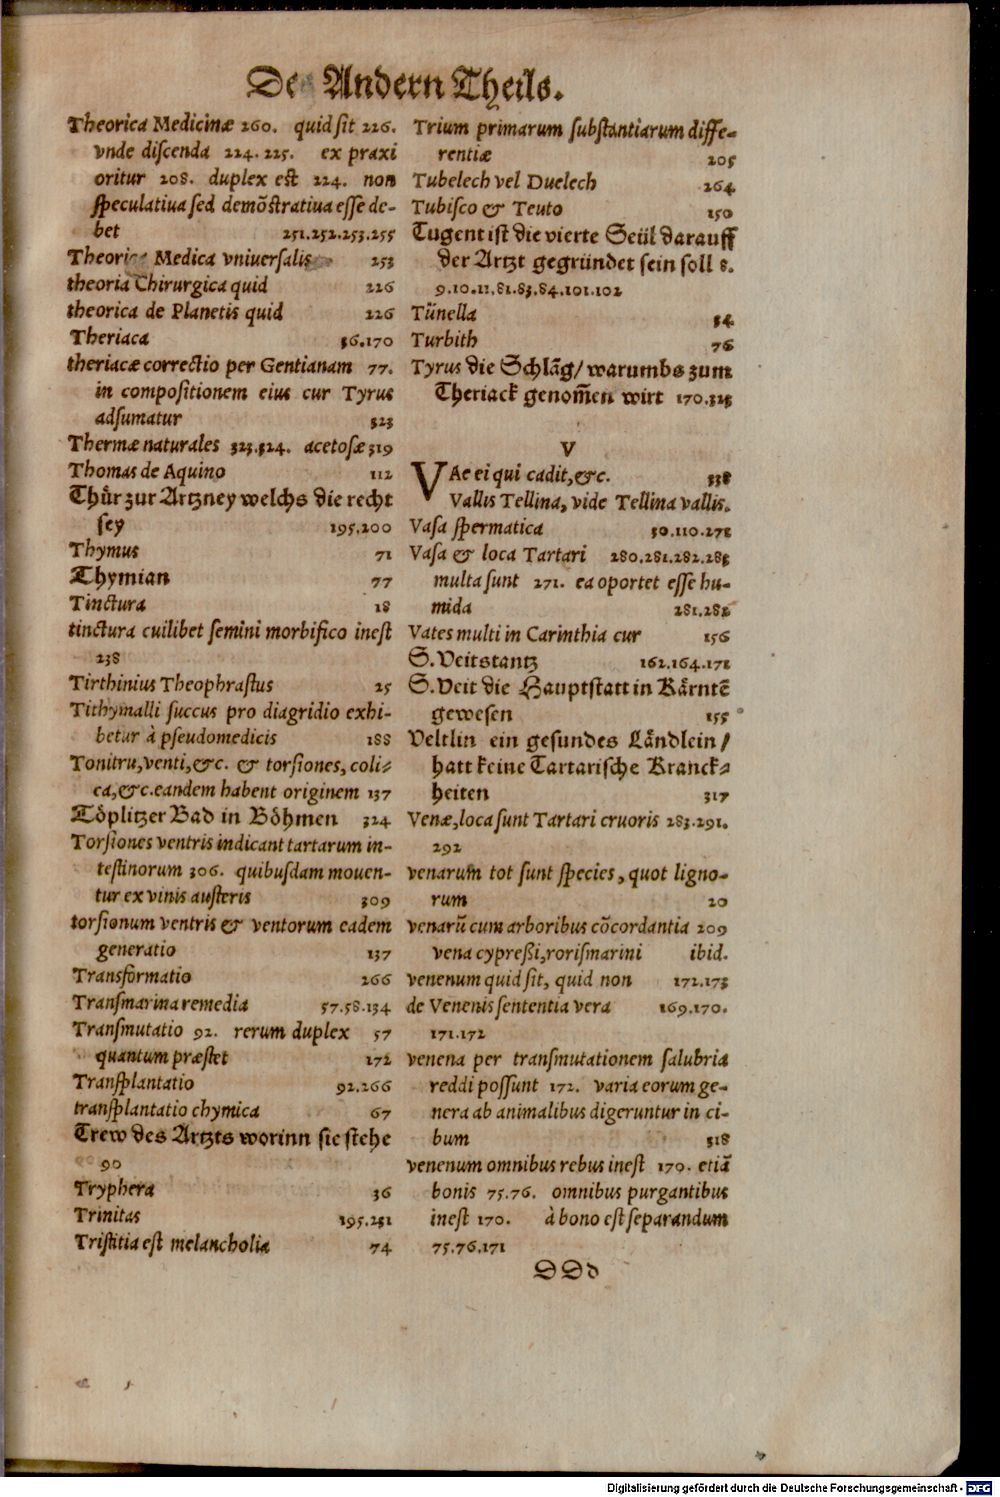 Des Andern Theils.
Theorica Medicinæ 260. quid ſit 226.
vnde diſcenda 224. 225. ex praxi
oritur 208. duplex est 224. non
ſpeculatiua ſed demõſtratiua eſſe de-
bet 251.252.253.255
Theorica Medica vniuerſalis 253
theoria Chirurgica quid 226
theorica de Planetis quid 226
Theriaca 36.170
theriacæ correctio per Gentianam 77.
in compoſitionem eius cur Tyrus
adſumatur 323
Thermæ naturales 323.324. acetoſæ 319
Thomas de Aquino 112
Thür zur Artzney welchs die recht
ſey 195.200
Thymus 71
Thymian 77
Tinctura 18
tinctura cuilibet ſemini morbifico ineſt
238
Tirthinius Theophraſtus 25
Tithymalli ſuccus pro diagridio exhi-
betur à pſeudomedicis 188
Tonitru,venti,&c. & torſiones, coli-
ca,&c.eandem habent originem 137
Töplitzer Bad in Böhmen 324
Torſiones ventris indicant tartarum in-
teſtinorum 306. quibuſdam mouen-
tur ex vinis auſteris 309
torſionum ventris & ventorum eadem
generatio 137
Transformatio 266
Tranſmarina remedia 57.58.134
Tranſmutatio 92. rerum duplex 57
quantum præſtet 172
Tranſplantatio 92.266
tranſplantatio chymica 67
Trew des Artzts worinn ſie ſtehe
90
Tryphera 36
Trinitas 195.231
Triſtitia eſt melancholia 74
Trium primarum ſubſtantiarum diffe-
rentiæ 205
Tubelech vel Duelech 264
Tubiſco & Teuto 150
Tugent iſt die vierte Seül darauff
der Artzt gegründet ſein ſoll 8.
9.10.11.81.83.84.101.102
Tünella 34
Turbith 76
Tyrus die Schlãg/ warumbs zum
Theriack genom̃en wirt 170.323
V
VAe ei qui cadit,&c. 338
Vallis Tellina, vide Tellina vallis.
Vaſa ſpermatica 30.110.278
Vaſa & loca Tartari 280.281.282.283
multa ſunt 271. ea oportet eſſe hu-
mida 281.288
Vates multi in Carinthia cur 156
S. Veitstantz 162.164.178
S. Veit die Hauptſtatt in Kärntẽ
geweſen 155
Veltlin ein geſundes Ländlein/
hatt keine Tartariſche Kranck-
heiten 317
Venæ,loca ſunt Tartari cruoris 283.291.
292
venarum tot ſunt ſpecies, quot ligno-
rum 20
venarũ cum arboribus cõcordantia 209
vena cypreßi,roriſmarini ibid.
venenum quid ſit, quid non 172.173
de Venenis ſententia vera 169.170.
171.172
venena per tranſmutationem ſalubria
reddi poſſunt 172. varia eorum ge-
nera ab animalibus digeruntur in ci-
bum 318
venenum omnibus rebus ineſt 170. etiã
bonis 75.76. omnibus purgantibus
ineſt 170. à bono eſt ſeparandum
75.76.171
DDd
Digitalisierung gefördert durch die Deutsche Forschungsgemeinschaft - DFG